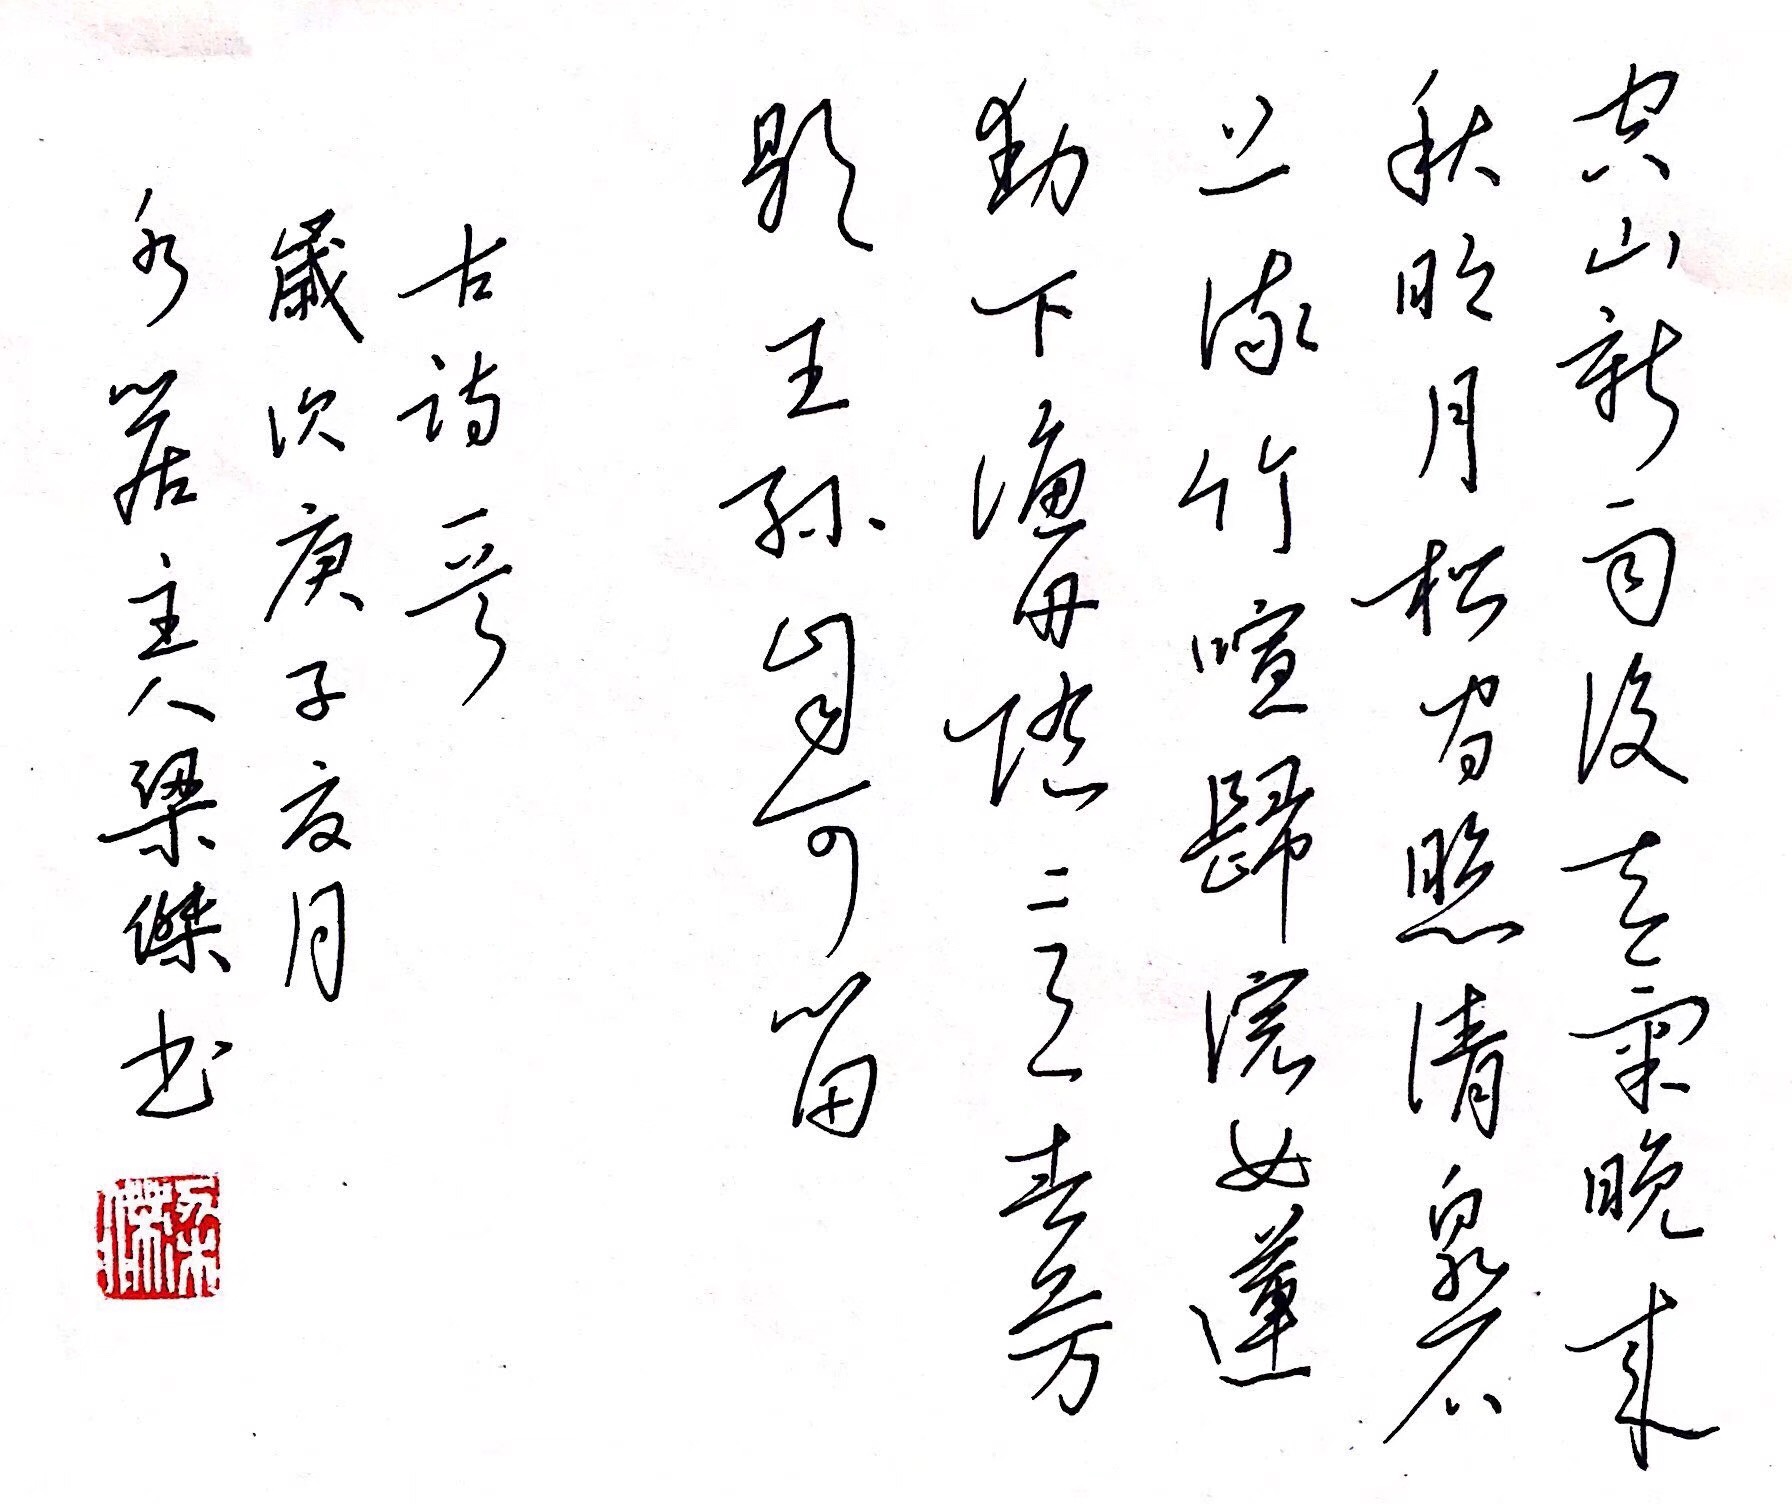 空山新雨後天氣晚來
秋明月松間照清泉石
上流竹喧歸浣女蓮
動下漁舟隨意春芳
歇王孫自可留
古詩一首
歲次庚子夏月
居主人梁傑书
梁傑